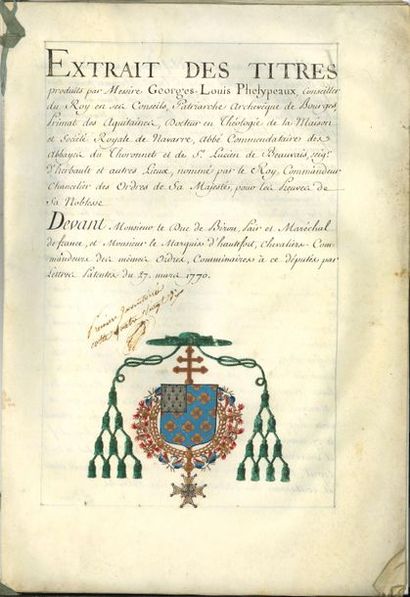 EXTRAIT DES TITRES
produits par Messire Georges-Louis Phelypeaux, Conseiller
du Roy en ses Conseils, Patriarche Archevêque de Bourges
Primat des Aquitaines, Docteur en Théologie de la Maison
et Société Royale de Navarre, Abbé Commendataire des
Abbayes du Thoronnet et de St. Lucien de Beauvais, seigr.
d'herbault et autres Lieux, nommé par le Roy, Commandeur
Chancelier des Ordres de Sa Majesté, pour les preuves de
Sa Noblesse
Devant Monsieur le Duc de Biron, Pair et Maréchal
de france, et Monsieur le Marquis d'hautefort, Chevaliers-Com-
mandeurs des mêmes Ordres, Commissaires à ce députés par
Lettres Patentes du 27. mars 1770.
Premier Inventorié
cotte